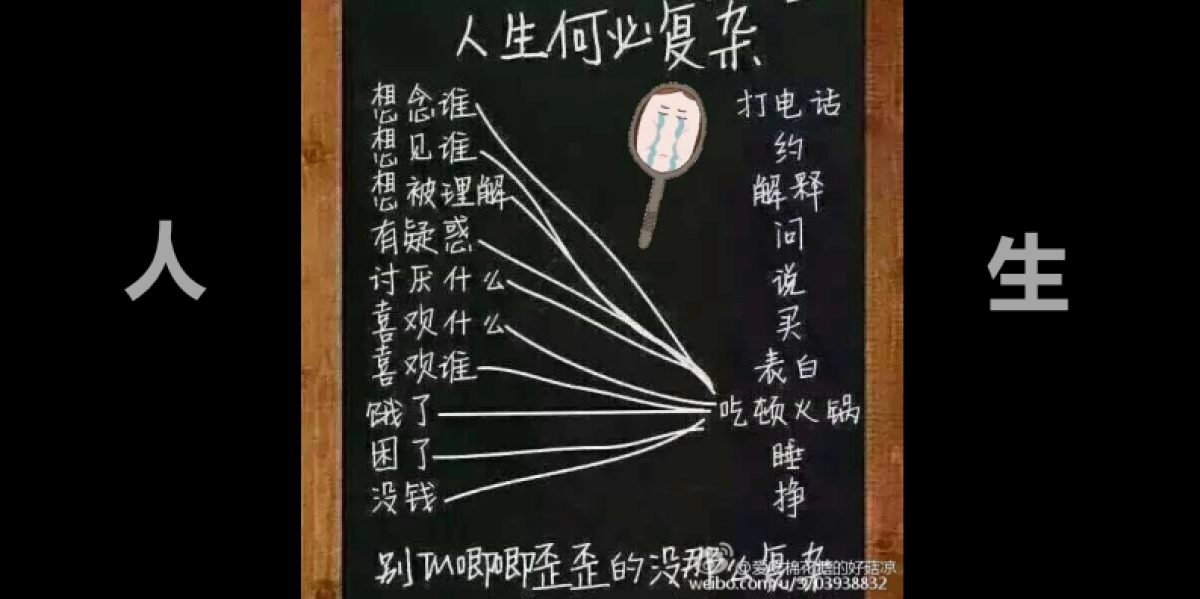 人生何必复杂
想念谁 打电话
想见谁 约
想被理解 解释
有疑惑 问
讨厌什么 说
喜欢什么 买
喜欢谁 表白
饿了 吃顿火锅
困了 睡
没钱 挣
别TM唧唧歪歪的没那么复杂
人
生
weibo.com/u/3703938832